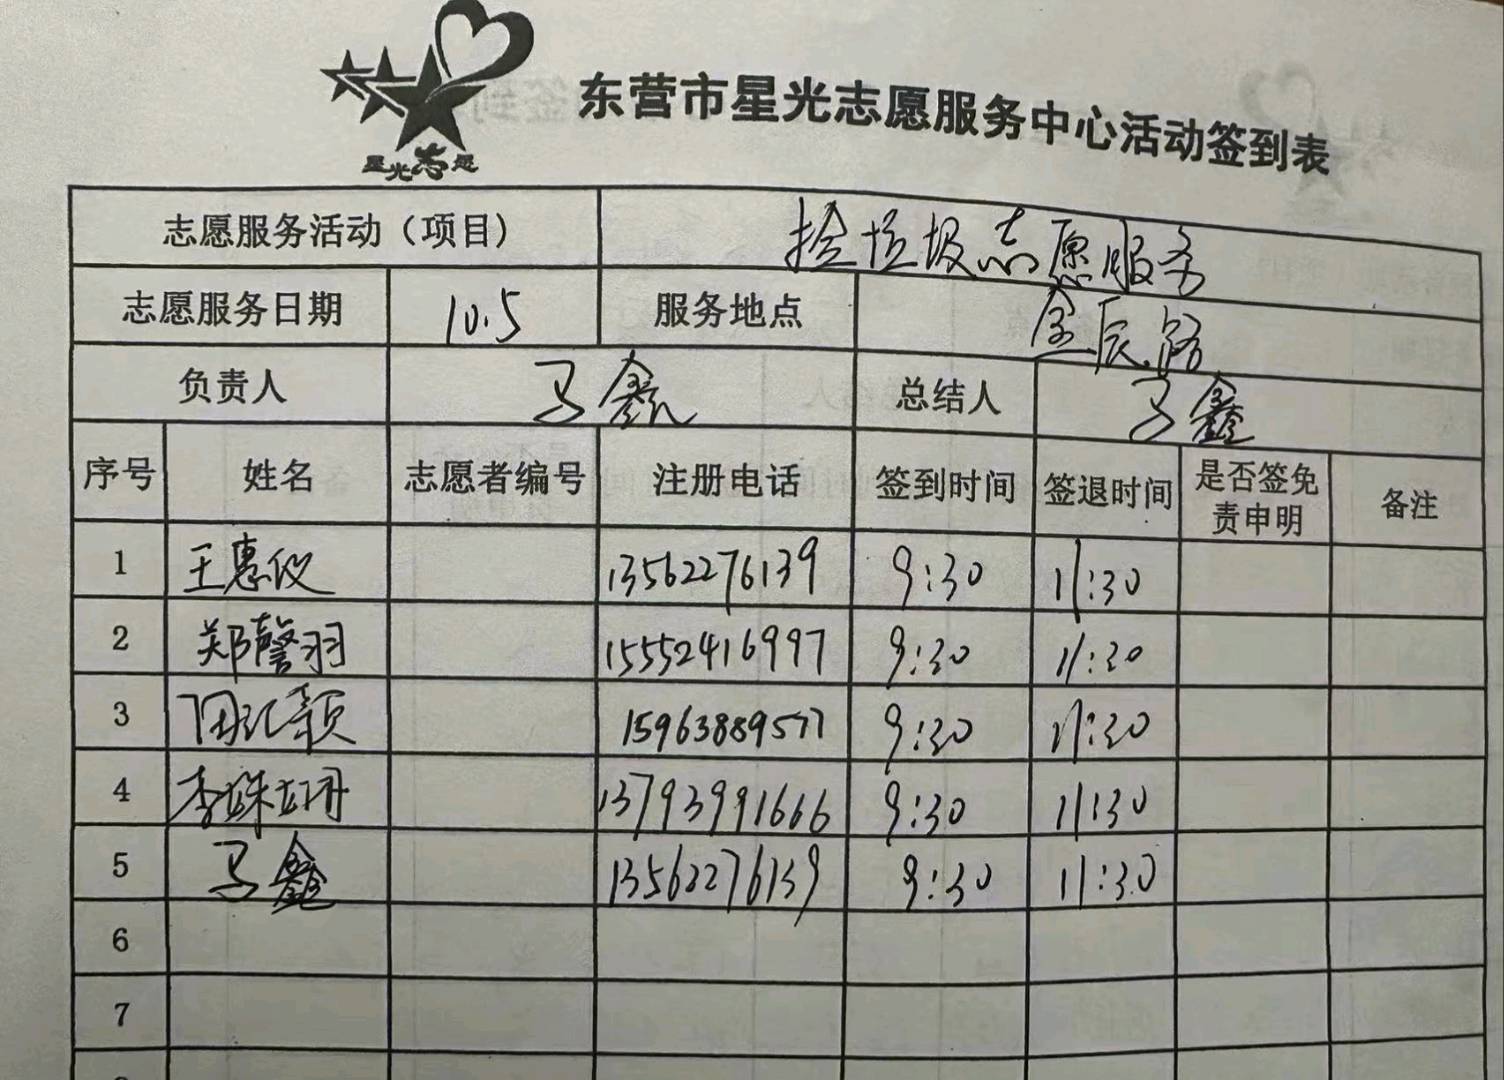 星光志愿
东营市星光志愿服务中心活动签到表
志愿服务活动（项目） 捡垃圾志愿服务
志愿服务日期 10.5 服务地点 金辰路
负责人 马鑫 总结人 马鑫
序号 姓名 志愿者编号 注册电话 签到时间 签退时间 是否签免责申明 备注
1 王惠仪 13562276139 9:30 11:30
2 郑馨羽 15552416997 9:30 11:30
3 15963889577 9:30 11:30
4 李姝玥 13793991666 9:30 11:30
5 马鑫 13562276139 9:30 11:30
6
7